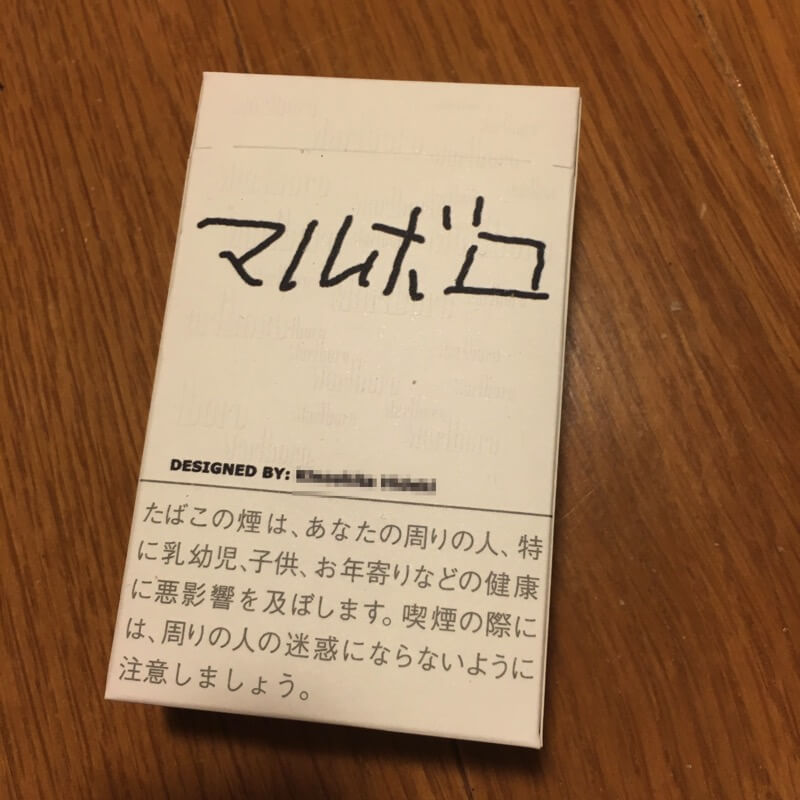 マルボロ
DESIGNED BY:
たばこの煙は、あなたの周りの人、特
に乳幼児、子供、お年寄りなどの健康
に悪影響を及ぼします。喫煙の際に
は、周りの人の迷惑にならないように
注意しましょう。